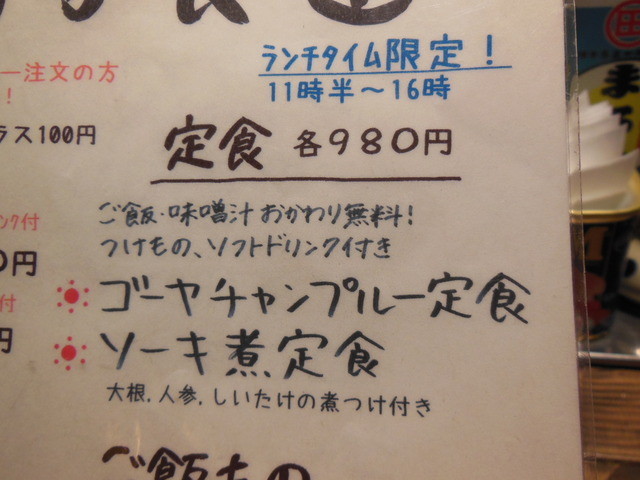 ランチタイム限定！
11時半〜16時
ー注文の方
！
ラス100円
定食 各980円
ンク付
0円
付
円
ご飯・味噌汁 おかわり無料！
つけもの、ソフトドリンク付き
ゴーヤチャンプルー定食
ソーキ煮定食
大根,人参,しいたけの煮つけ付き
ご飯もの